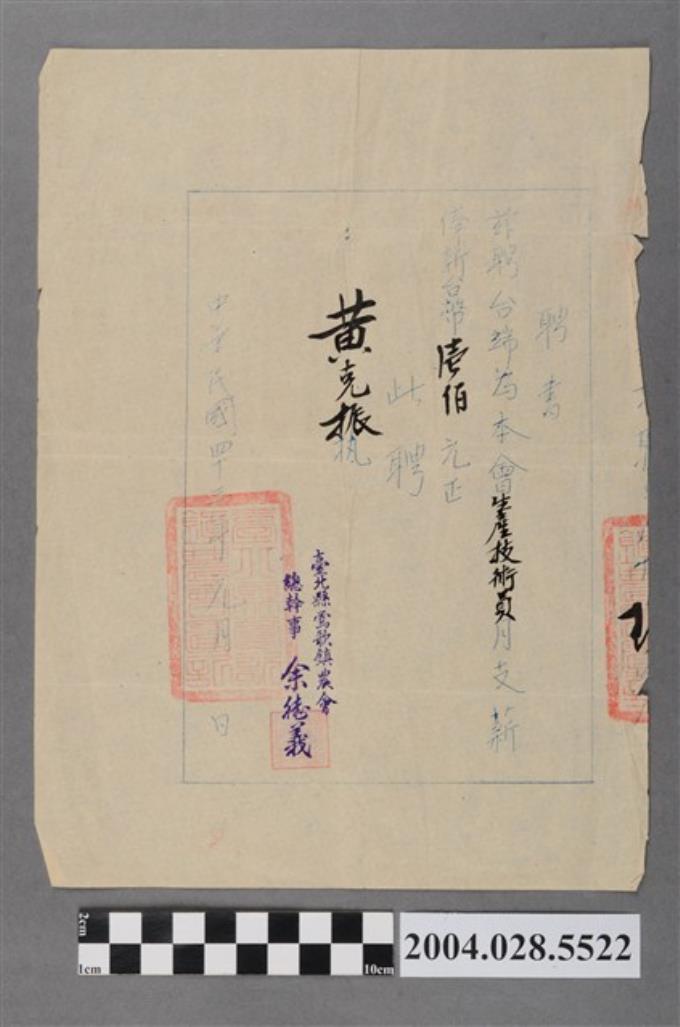 聘書
茲聘台端為本會生產技術員月支薪
俸新台幣壹佰元正
此聘
黃克振
臺北縣鶯歌鎮農會
總幹事 余德義
中華民國四十三年元月 日
2cm
1cm
10cm
2004.028.5522